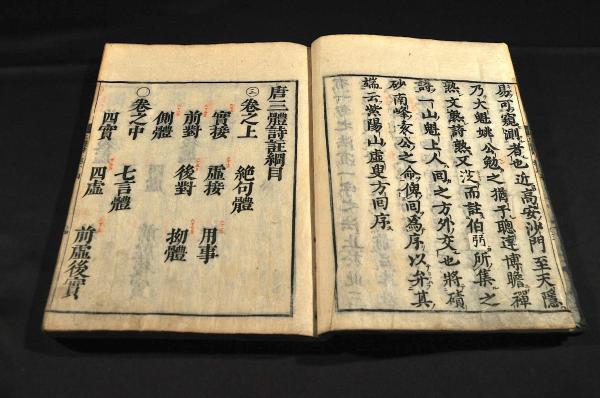 易可窺測者也近高安沙門至天隱
乃大魁姚公勉之猶子聰達博瞻禪
熟文熟詩熟又没而註伯弜所集之
詩一山魁上人回之方外交也將磧
砂南峰袁公之命俾回為序以弁其
端云紫陽山虛叟方回序
唐三體詩註綱目
㊂卷之上 絕句體
實接 虛接 用事
前對 後對
側體 拗體
〇卷之中 七言體
四實 四虛 前虛後實